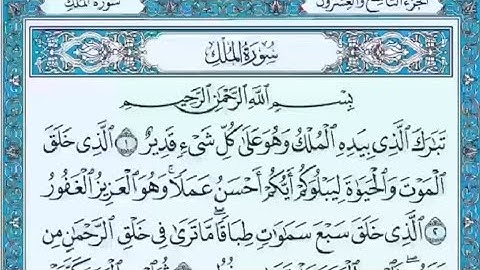 سُورَةُ المُلْكِ الجُزْءُ التَّاسِعُ وَالعِشْرُونَ
سُورَةُ المُلْكِ
بِسْمِ اللَّهِ الرَّحْمَٰنِ الرَّحِيمِ
تَبَارَكَ الَّذِي بِيَدِهِ الْمُلْكُ وَهُوَ عَلَىٰ كُلِّ شَيْءٍ قَدِيرٌ ١ الَّذِي خَلَقَ
الْمَوْتَ وَالْحَيَاةَ لِيَبْلُوَكُمْ أَيُّكُمْ أَحْسَنُ عَمَلًا ۚ وَهُوَ الْعَزِيزُ الْغَفُورُ
٢ الَّذِي خَلَقَ سَبْعَ سَمَاوَاتٍ طِبَاقًا ۖ مَّا تَرَىٰ فِي خَلْقِ الرَّحْمَٰنِ مِن